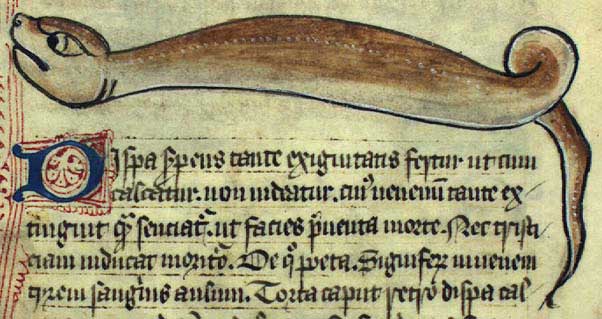 Dispa sp̱ens tante exiguitatis fertur ut cum
calcatur. non uideatur. cuiꝰ uenenū tante ex-
tinguit qͣ senciat᷑. ut facies p̄uenta morte. Nec tristi-
ciam inducat morit᷑o. De qͦ poeta. Signifeꝝ iuuenem
tyreni sang̾nis aulum. Torta caput retro dispa cal-